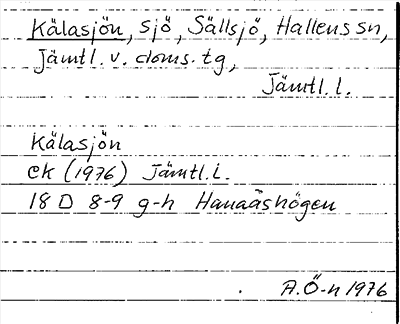 Kälasjön, sjö, Sällsjö, Hallens sn,
Jämtl. v. doms. tg,
Jämtl. l.
Kälasjön
ek (1976) Jämtl. L.
18 D 8-9 g-h Hanaåshögen
A.Ö-n 1976